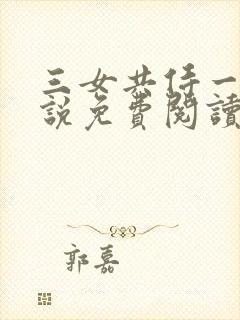 三女共侍一
說免費閱讀
郭嘉